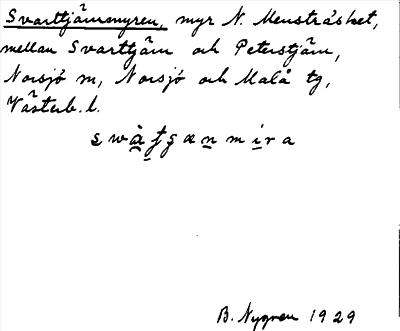 Svarttjärnmyren, myr N. Mensträsket,
mellan Svarttjärn och Peterstjärn,
Norsjö sn, Norsjö och Malå tg,
Västerb. l.
B. Nygren 1929